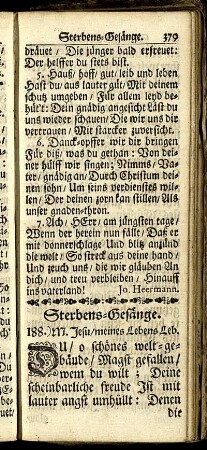 Sterbens-Gesänge. 379
dräuet / Die jünger bald erfreuet:
Der helffer du stets bist.
5. Hauß / hoff / gut / leib und leben
Hast du aus lauter gut / Mit deinem
schutz umgeben / Für allem leyd be-
hüt: Dein gnädig angesicht Läst du
uns wieder schauen / Die wir uns dir
vertrauen / Mit starcker zuversicht.
6. Danck-opffer wir dir bringen
Für diß / was du gethan: Von dei-
ner hülff wir singen; Nimms / Va-
ter / gnädig an / Durch Christum dei-
nen sohn / Um seins verdienstes wil-
len / Der deinen zorn kan stillen / Als
unser gnaden-thron.
7. Ach / HErr / am jüngsten tage /
Wenn der herein nun fällt / Daß er
mit donnerschlage Und blitz anzünd
die welt / So streck aus deine hand /
Und zeuch uns / die wir glauben An
dich / und treu verbleiben / Hinauff
ins vaterland. Jo. Heermann.
Sterbens-Gesänge.
188. M. Jesu / meines Lebens Leb.
DU / o schönes welt-ge-
bäude / Magst gefallen /
wem du wilt; Deine
scheinbarliche freude Ist mit
lauter angst umhüllt: Denen
die